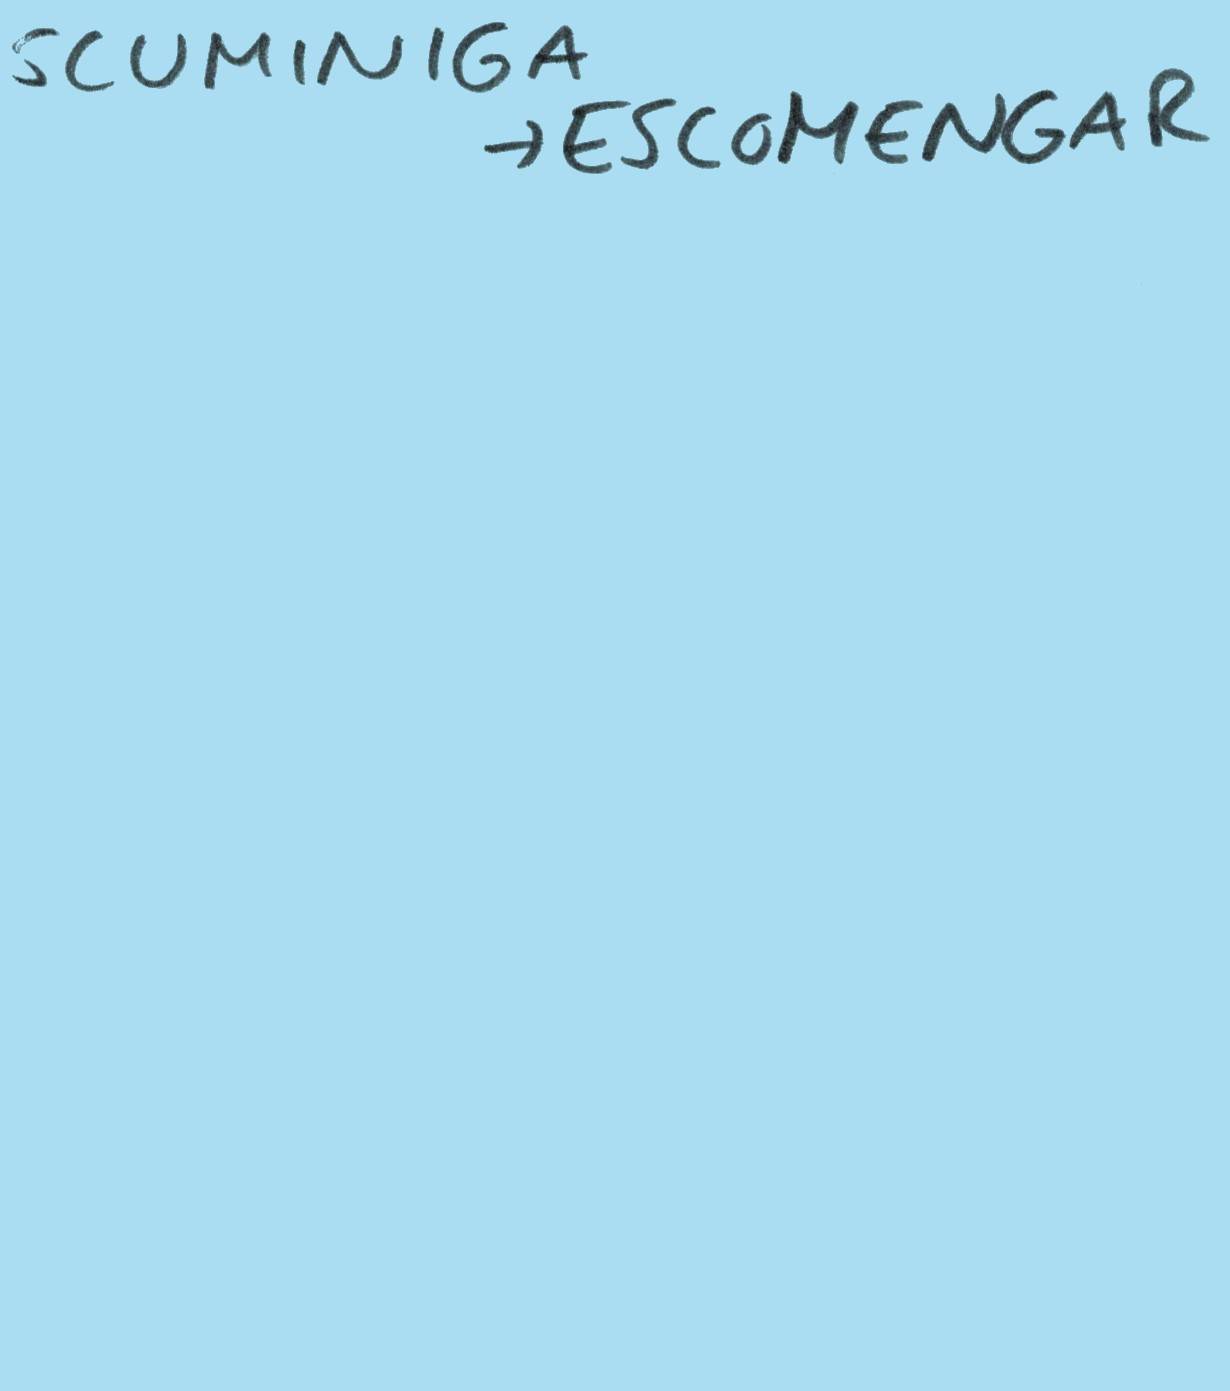 SCUMINIGA
→ESCOMENGAR